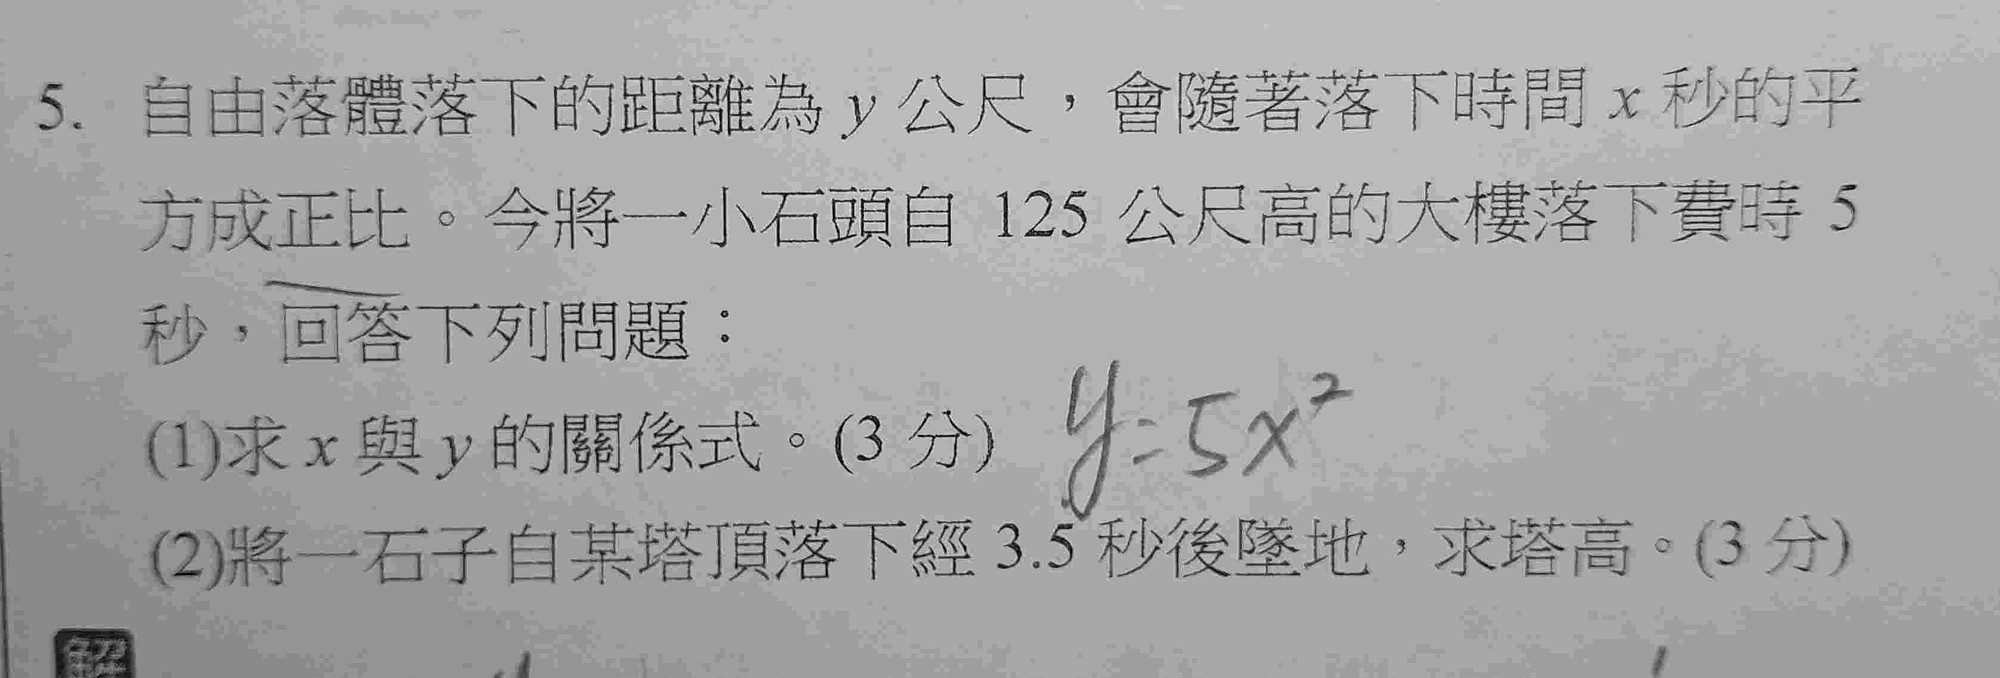 5. 自由落體落下的距離為 y 公尺，會隨著落下時間 x 秒的平
方成正比。今將一小石頭自 125 公尺高的大樓落下費時 5
秒，回答下列問題：
(1)求 x 與 y 的關係式。(3 分) y=5x²
(2)將一石子自某塔頂落下經 3.5 秒後墜地，求塔高。(3 分)
解